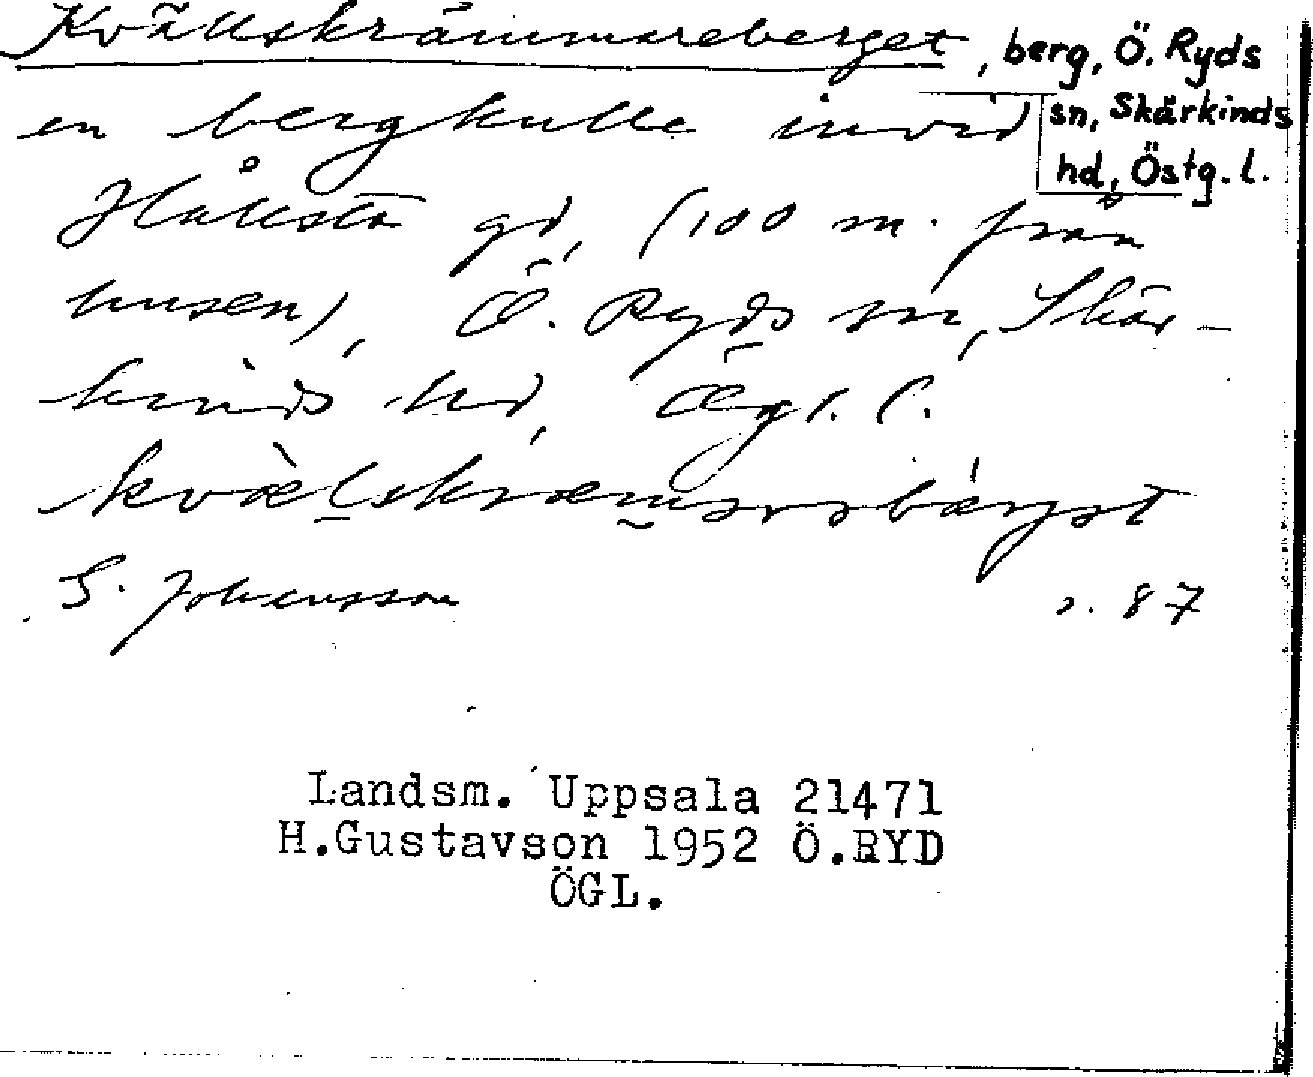 Kvällskrämmareberget, berg, Ö. Ryds
sn, Skärkinds
hd, Östg. l.
en bergkulle invid
Hållsta gd, (100 m. från
husen), Ö. Ryds sn, Skär-
kinds hd, Ögl. l.
S. Johansson
f. 87
Landsm. Uppsala 21471
H.Gustavson 1952 Ö.RYD
ÖGL.